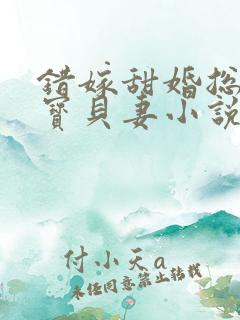 錯嫁甜婚总
寶貝妻小說
付小天a
未经同意禁止转载